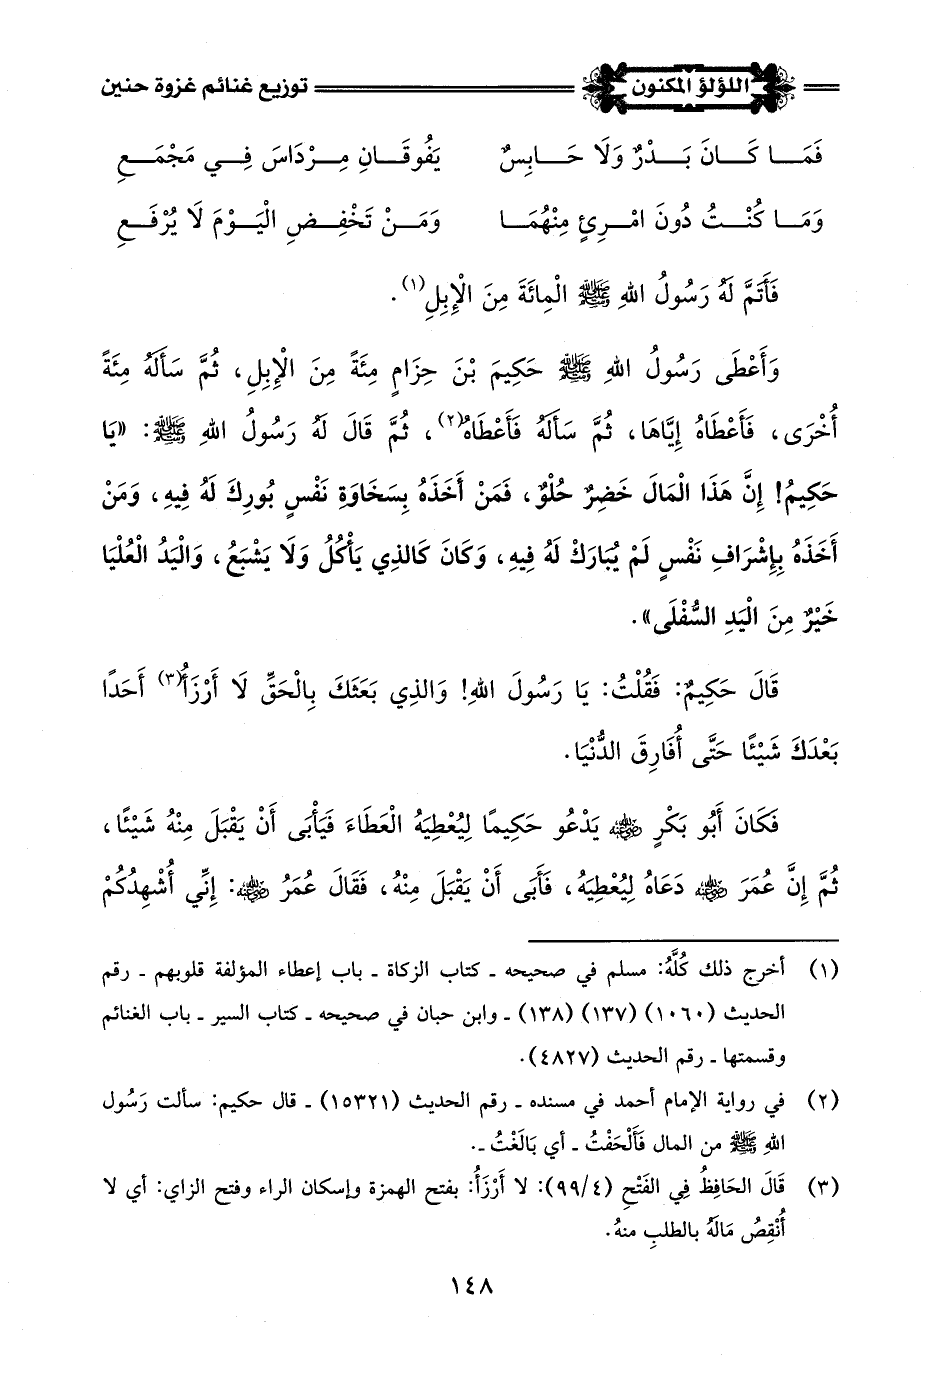 اللؤلؤ المكنون توزيع غنائم غزوة حنين
فَمَا كَانَ بَدْرٌ وَلَا حَابِسٌ يَفُوقَانِ مِرْدَاسَ فِي مَجْمَعِ
وَمَا كُنْتُ دُونَ امْرِئٍ مِنْهُمَا وَمَنْ تَخْفِضِ الْيَوْمَ لَا يُرْفَعِ
فَأَتَمَّ لَهُ رَسُولُ اللهِ ﷺ الْمِائَةَ مِنَ الْإِبِلِ(١).
وَأَعْطَى رَسُولُ اللهِ ﷺ حَكِيمَ بْنَ حِزَامٍ مِئَةً مِنَ الْإِبِلِ، ثُمَّ سَأَلَهُ مِئَةً
أُخْرَى، فَأَعْطَاهُ إِيَّاهَا، ثُمَّ سَأَلَهُ فَأَعْطَاهُ(٢)، ثُمَّ قَالَ لَهُ رَسُولُ اللهِ ﷺ: «يَا
حَكِيمُ! إِنَّ هَذَا الْمَالَ خَضِرٌ حُلْوٌ، فَمَنْ أَخَذَهُ بِسَخَاوَةِ نَفْسٍ بُورِكَ لَهُ فِيهِ، وَمَنْ
أَخَذَهُ بِإِشْرَافِ نَفْسٍ لَمْ يُبَارَكْ لَهُ فِيهِ، وَكَانَ كَالذِي يَأْكُلُ وَلَا يَشْبَعُ، وَالْيَدُ الْعُلْيَا
خَيْرٌ مِنَ الْيَدِ السُّفْلَى».
قَالَ حَكِيمٌ: فَقُلْتُ: يَا رَسُولَ اللهِ! وَالذِي بَعَثَكَ بِالْحَقِّ لَا أَرْزَأُ(٣) أَحَدًا
بَعْدَكَ شَيْئًا حَتَّى أُفَارِقَ الدُّنْيَا.
فَكَانَ أَبُو بَكْرٍ رضي الله عنه يَدْعُو حَكِيمًا لِيُعْطِيَهُ الْعَطَاءَ فَيَأْبَى أَنْ يَقْبَلَ مِنْهُ شَيْئًا،
ثُمَّ إِنَّ عُمَرَ رضي الله عنه دَعَاهُ لِيُعْطِيَهُ، فَأَبَى أَنْ يَقْبَلَ مِنْهُ، فَقَالَ عُمَرُ رضي الله عنه: إِنِّي أُشْهِدُكُمْ
(١) أخرج ذلك كُلَّهُ: مسلم في صحيحه ـ كتاب الزكاة ـ باب إعطاء المؤلفة قلوبهم ـ رقم
الحديث (١٠٦٠) (١٣٧) (١٣٨) ـ وابن حبان في صحيحه ـ كتاب السير ـ باب الغنائم
وقسمتها ـ رقم الحديث (٤٨٢٧).
(٢) في رواية الإمام أحمد في مسنده ـ رقم الحديث (١٥٣٢١) ـ قال حكيم: سألت رَسُول
اللهِ ﷺ من المال فَأَلْحَفْتُ ـ أي بَالَغْتُ ـ.
(٣) قَالَ الحَافِظُ فِي الفَتْحِ (٩٩/٤): لا أَرْزَأُ: بفتح الهمزة وإسكان الراء وفتح الزاي: أي لا
أُنْقِصُ مَالَهُ بالطلبِ منهُ.
١٤٨